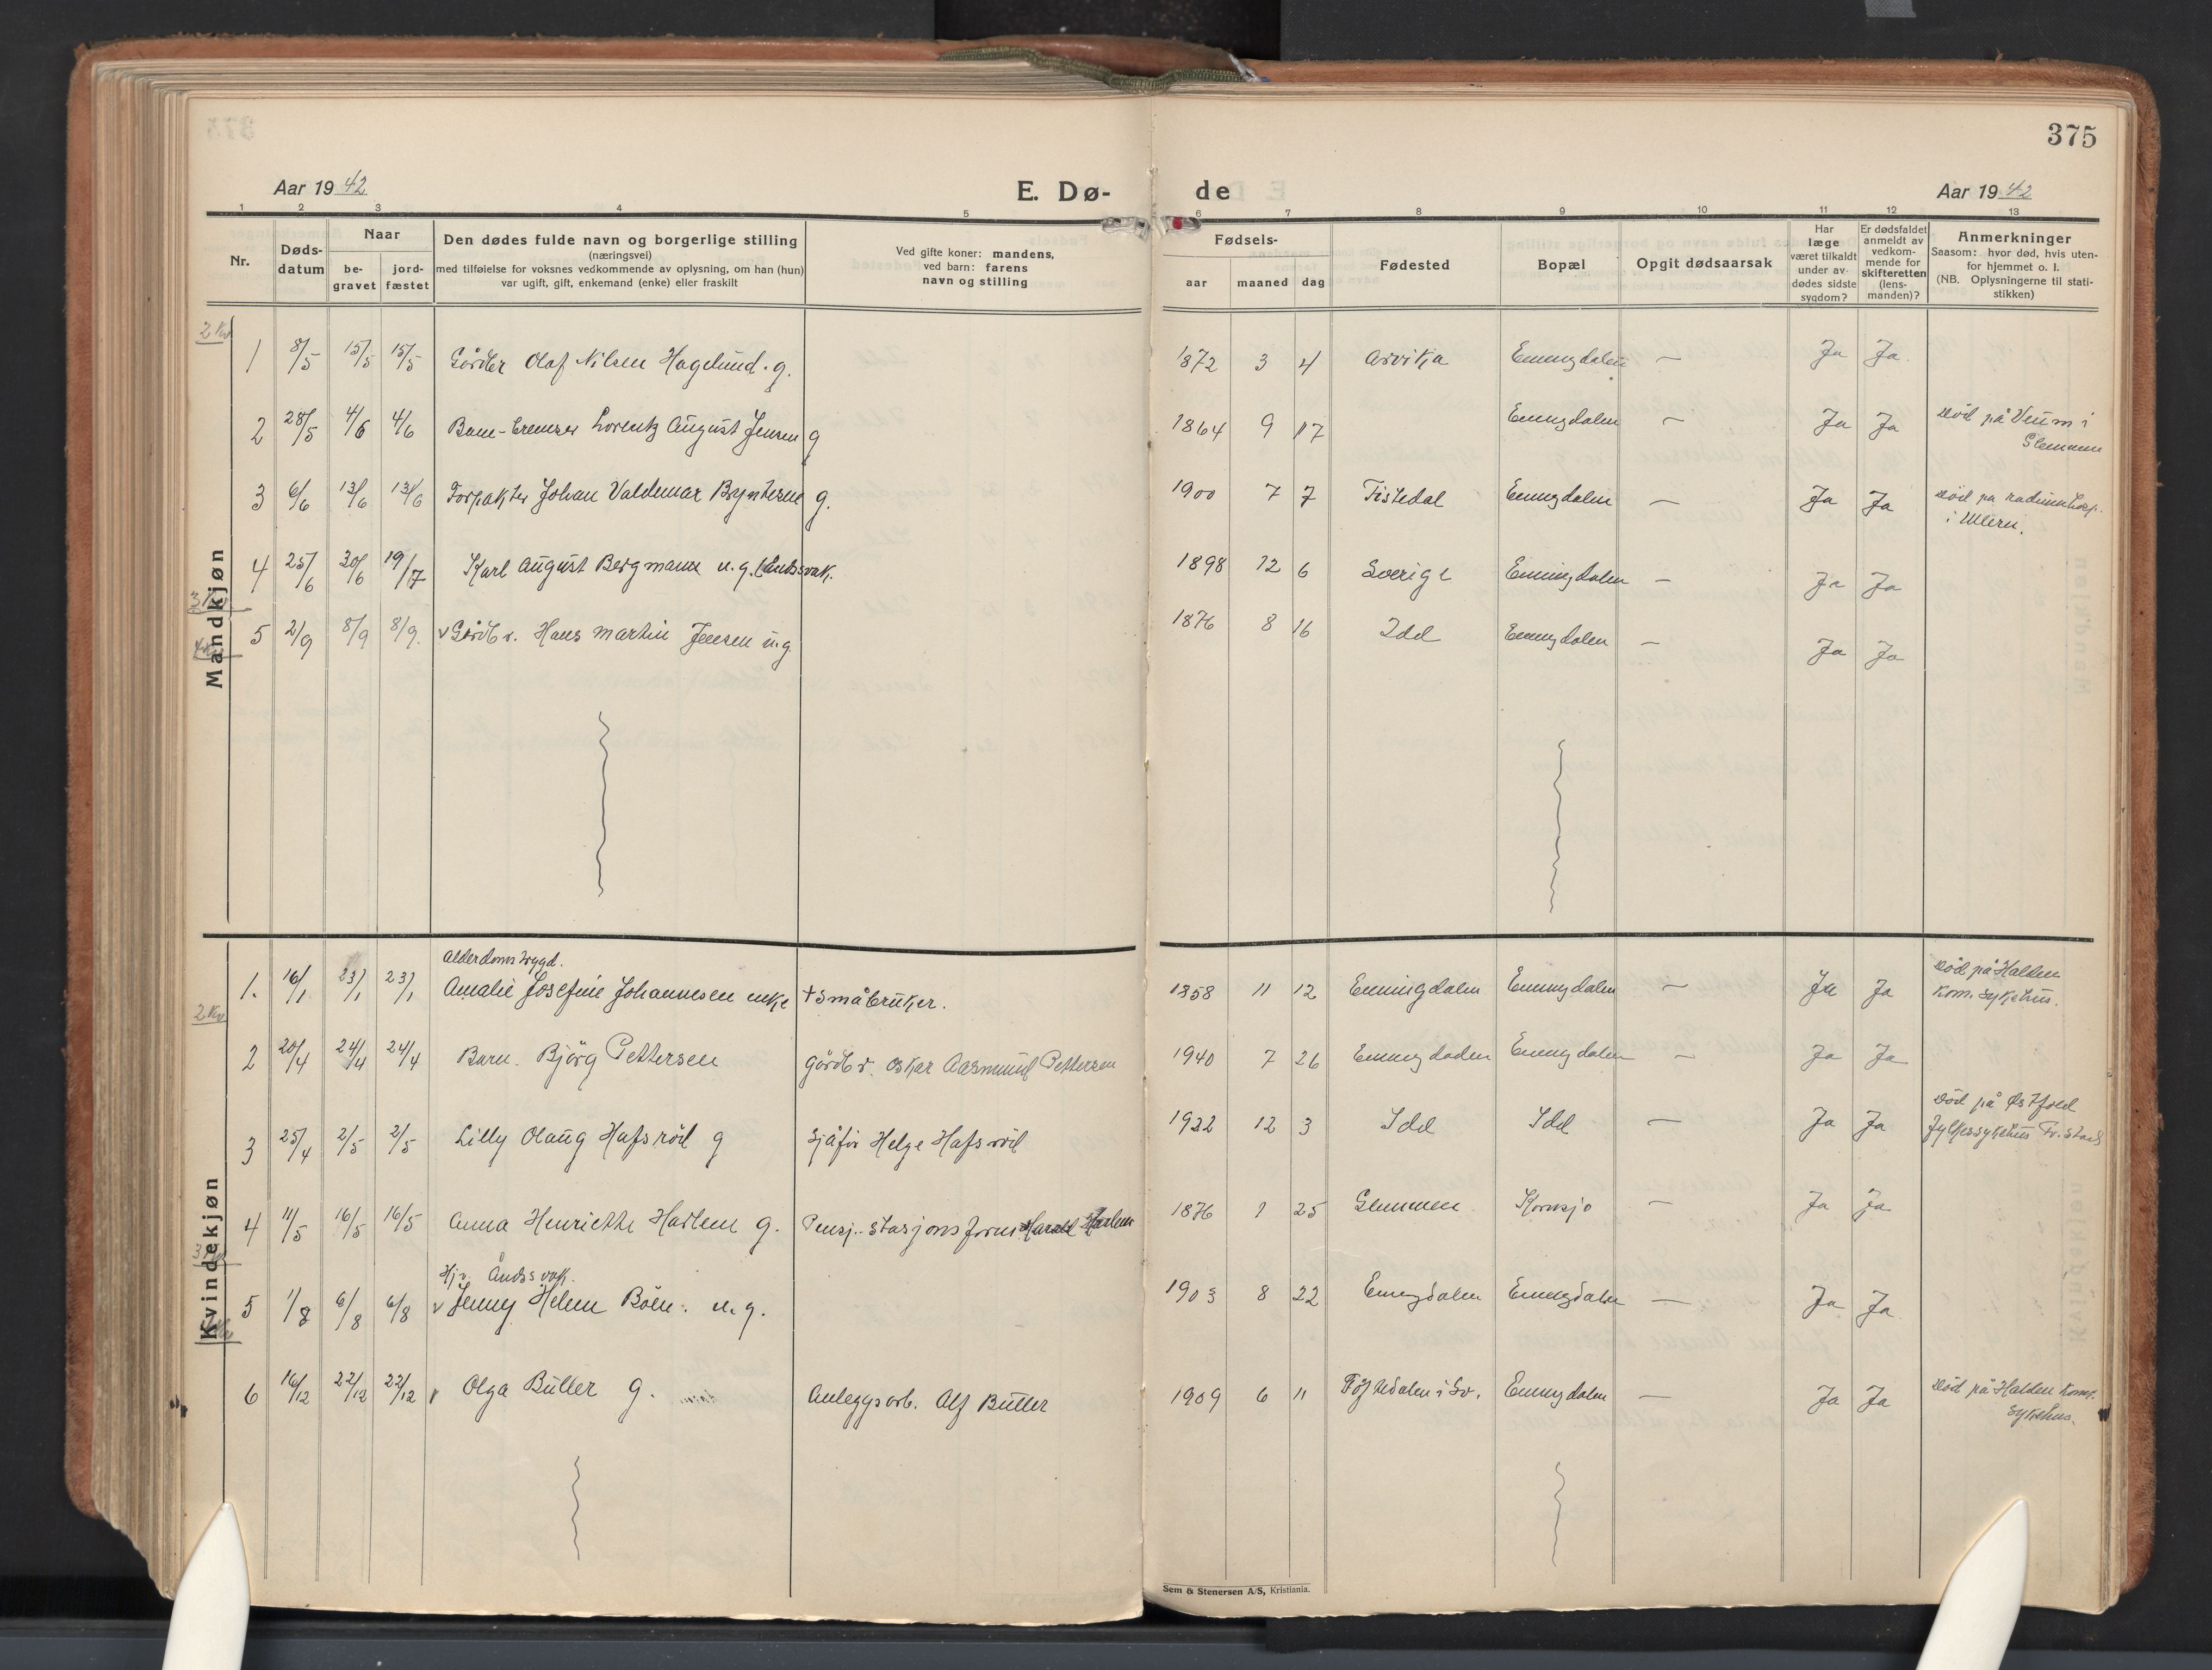 375
Aar 19 42
E. Dø-
de
Aar 19 42
1 2 3 4 5 6 7 8 9 10 11 12 13
Nr.
Døds-
datum
Naar
be-
gravet
jord-
fæstet
Den dødes fulde navn og borgerlige stilling
(næringsvei)
med tilføielse for voksnes vedkommende av oplysning, om han (hun)
var ugift, gift, enkemand (enke) eller fraskilt
Ved gifte koner: mandens,
ved barn: farens
navn og stilling
Fødsels-
aar maaned dag
Fødested
Bopæl
Opgit dødsaarsak
Har
læge
været tilkaldt
under av-
dødes sidste
sygdom?
Er dødsfaldet
anmeldt av
vedkom-
mende for
skifteretten
(lens-
manden)?
Anmerkninger
Saasom: hvor død, hvis uten-
for hjemmet o. l.
(NB. Oplysningerne til stati-
stikken)
Mandkjøn
2 Kv
1 8/5 15/5 15/5 Gårdbr Olaf Nilsen Hagelund. g. 1872 3 4 Arvika Enningdalen — Ja Ja.
2 28/5 4/6 4/6 Lorentz August Jensen g 1864 9 17 Enningdalen — Ja Ja Död på Veum i
Glemmen
3 6/6 13/6 13/6 Forpakter Johan Valdemar g. 1900 7 7 Tistedal Enningdalen — Ja Ja Död på radiumhosp.
i Ullern.
4 25/6 30/6 19/7 Karl August Bergmann u. g. (åndssvak. 1898 12 6 Sverige Enningdalen — Ja Ja
5 2/9 8/9 8/9. v Gårdbr. Hans Martin Jensen u.g. 1876 8 16 Idd Enningdalen — Ja Ja
Kvindekjøn
Alderdomstrygd.
1. 16/1 23/1 23/1 Amalie Josefine Johannesen enke + småbruker. 1858 11 12 Enningdalen Enningdalen — Ja Ja Död på Halden
kom. sykehus.
2 Kv
2 20/4 24/4 24/4 Barn. Björg Pettersen gårdbr. Oskar Aasmund Pettersen 1940 7 26 Enningdalen Enningdalen — Ja Ja
3 25/4 2/5 2/5 Lilly Olaug Hafsröd g Sjåför Helge Hafsröd 1922 12 3 Idd Idd — Ja Ja Död på Østfold
fylkessykehus Fr.stad
4 11/5 16/5 16/5 Anna Henriette Harlem g. Pensj. stasjonsform. Harald Harlem 1876 1 25 Glemmen Kornsjø — Ja Ja
Hjv. Åndssvak.
5 1/8 6/8 6/8 v Jenny Helene Böen. u. g. 1903 8 22 Enningdalen Enningdalen — Ja Ja
6 16/12 22/12 22/12 v Olga Buller g. Anleggsarb. Alf Buller 1909 6 11 i Sv. Enningdalen — Ja Ja Död på Halden kom.
sykehus.
Sem & Stenersen A/S, Kristiania.